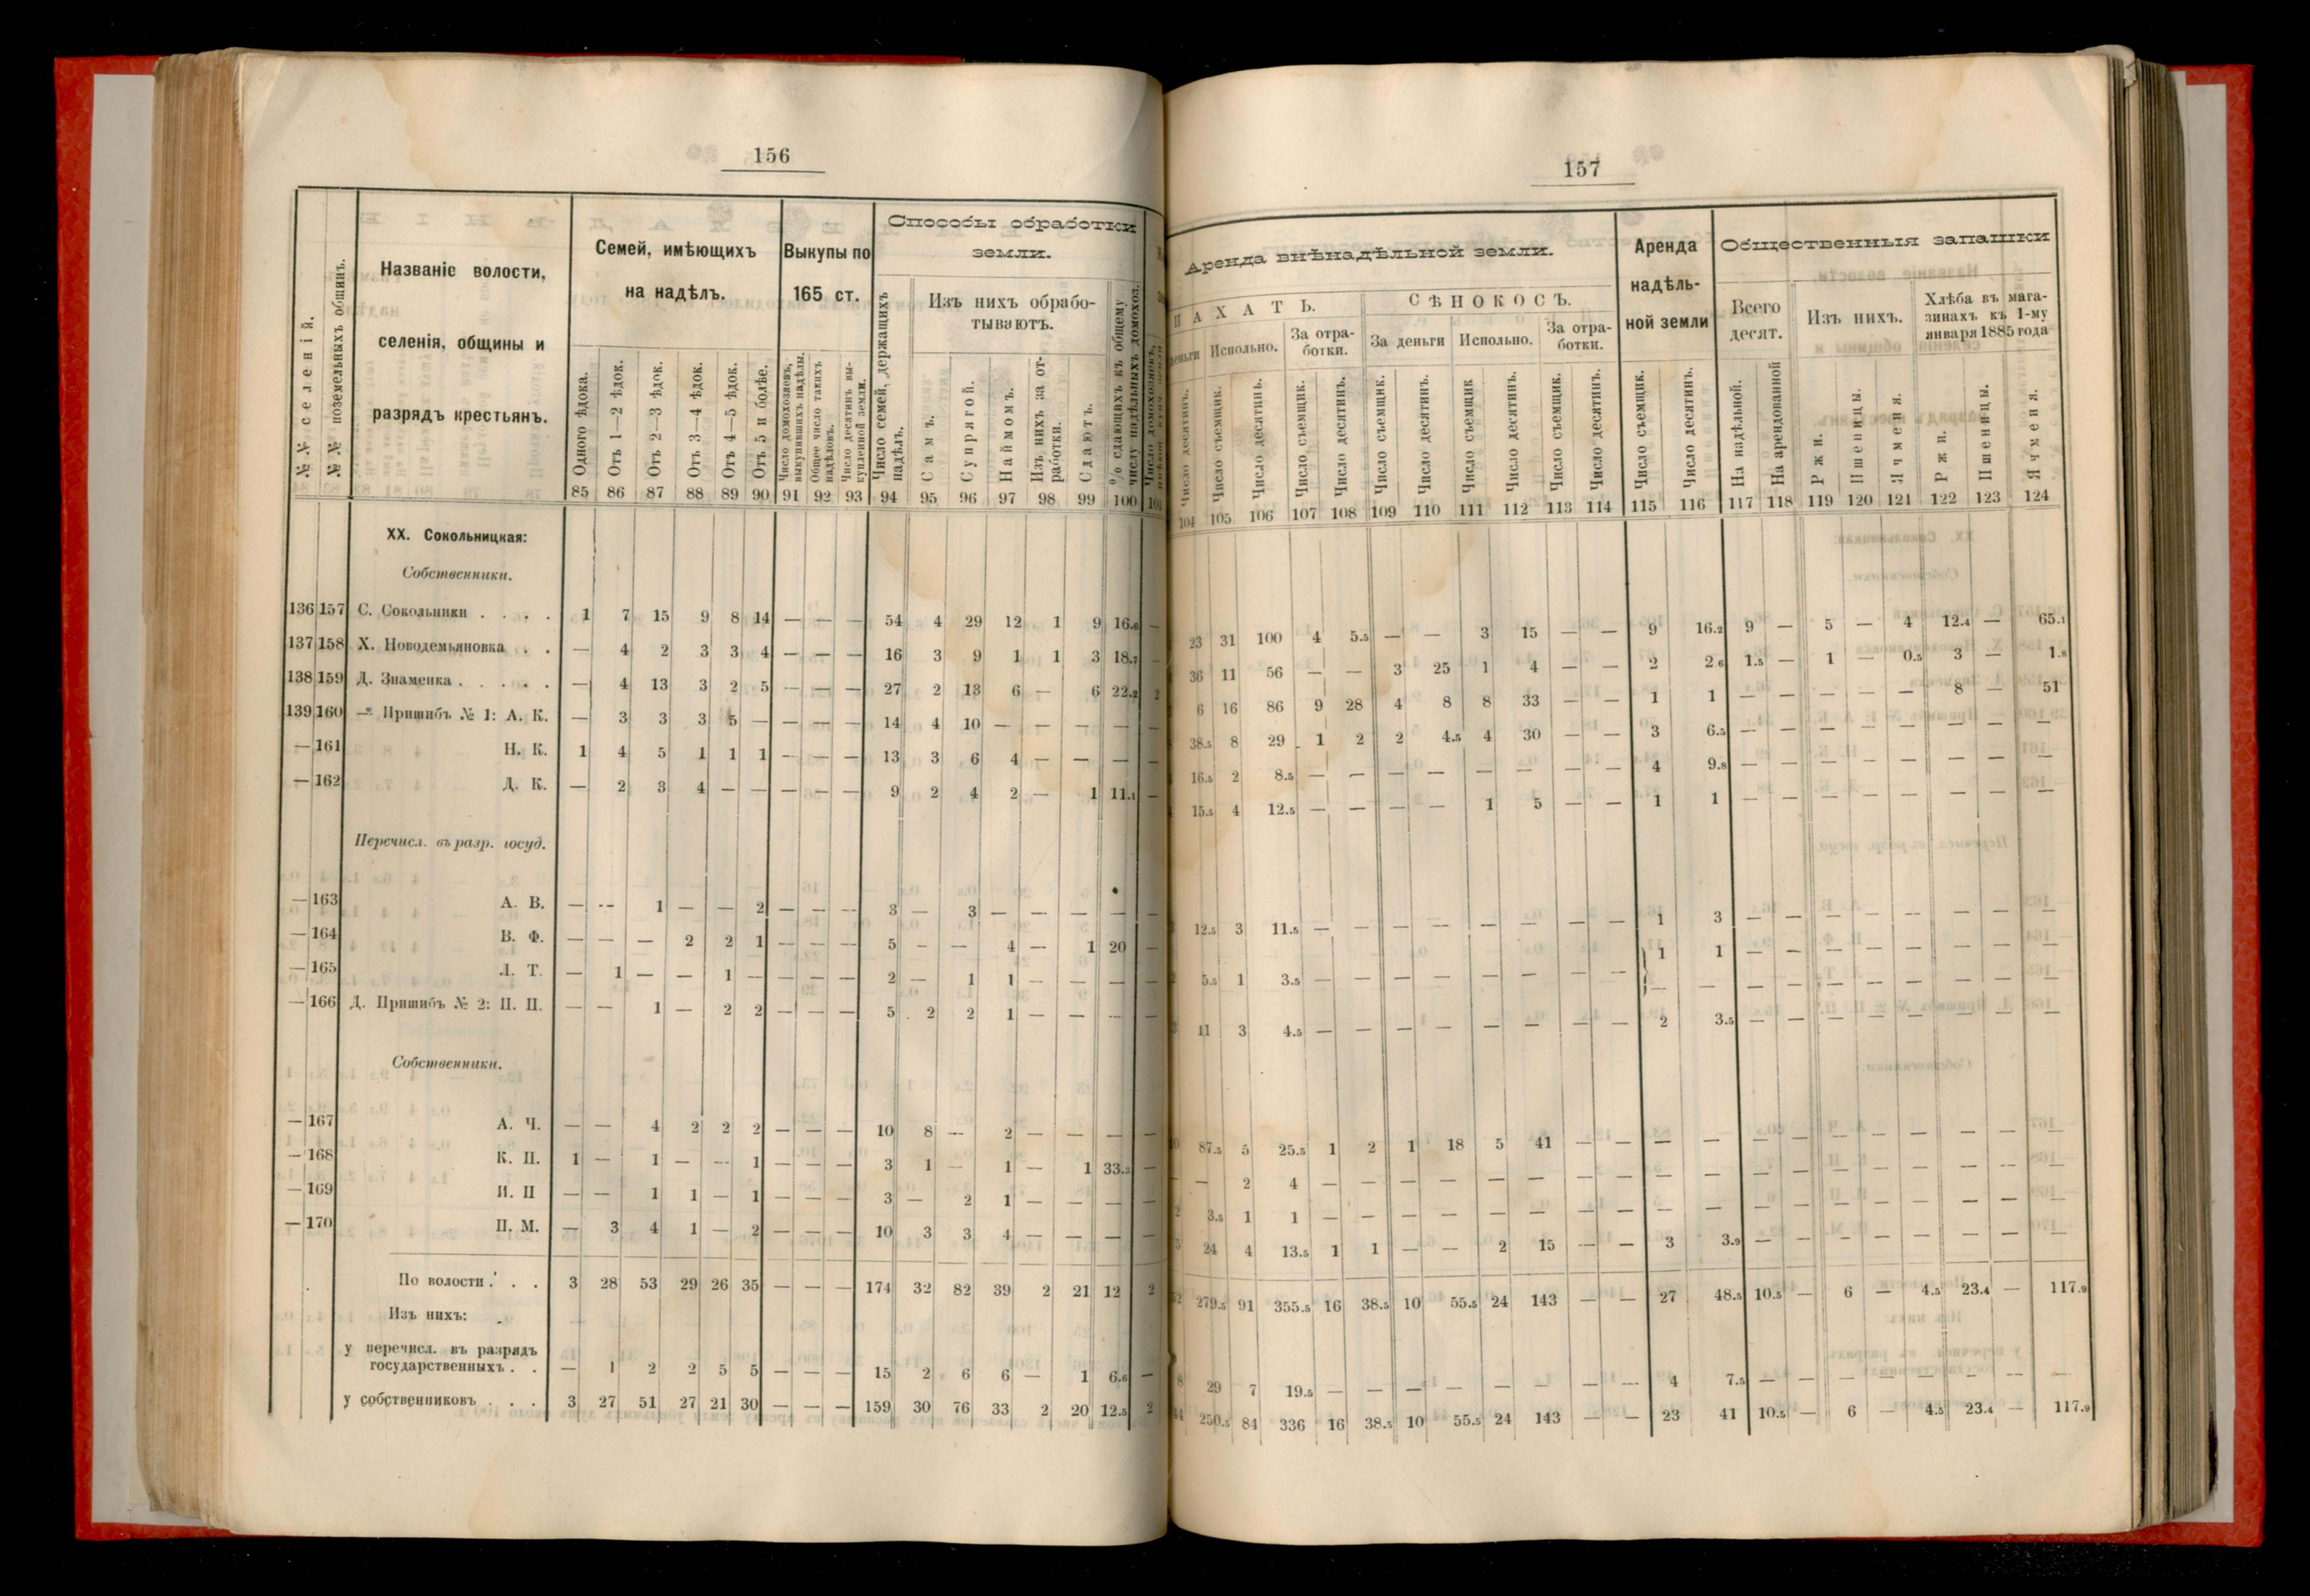 156
№№ селеній.
№№ поземельныхъ общинъ.
Названіе волости,
селенія, общины и
разрядъ крестьянъ.
Семей, имѣющихъ
на надѣлъ.
Одного ѣдока.
Отъ 1—2 ѣдок.
Отъ 2—3 ѣдок.
Отъ 3—4 ѣдок.
Отъ 4—5 ѣдок.
Отъ 5 и болѣе.
Выкупы по
165 ст.
Число домохозяевъ,
выкупившихъ надѣлы.
Общее число такихъ
надѣловъ.
Число десятинъ вы-
купленной земли.
Способы обработки
земли.
Число семей, держащихъ
надѣлъ.
Изъ нихъ обрабо-
тываютъ.
Самъ.
Супрягой.
Наймомъ.
Изъ нихъ за от-
работки.
Сдаютъ.
% сдающихъ къ общему
числу надѣльныхъ домохоз.
85 86 87 88 89 90 91 92 93 94 95 96 97 98 99 100 101
XX. Сокольницкая:
Собственники.
136 157 С. Сокольники . . . . 1 7 15 9 8 14 — — — 54 4 29 12 1 9 16.6 —
137 158 Х. Новодемьяновка . . — 4 2 3 3 4 — — — 16 3 9 1 1 3 18.7 —
138 159 Д. Знаменка . . . . . — 4 13 3 2 5 — — — 27 2 13 6 — 6 22.2 2
139 160 — Пришибъ № 1: А. К. — 3 3 3 5 — — — — 14 4 10 — — — — —
— 161 Н. К. 1 4 5 1 1 1 — — — 13 3 6 4 — — — —
— 162 Д. К. — 2 3 4 — — — — — 9 2 4 2 — 1 11.1 —
Перечисл. въ разр. госуд.
— 163 А. В. — — 1 — — 2 — — — 3 — 3 — — — — —
— 164 В. Ф. — — — 2 2 1 — — — 5 — — 4 — 1 20 —
— 165 Л. Т. — 1 — — 1 — — — — 2 — 1 1 — — — —
— 166 Д. Пришибъ № 2: П. П. — — 1 — 2 2 — — — 5 2 2 1 — — — —
Собственники.
— 167 А. Ч. — — 4 2 2 2 — — — 10 8 — 2 — — — —
— 168 К. П. 1 — 1 — — 1 — — — 3 1 — 1 — 1 33.3 —
— 169 И. П — — 1 1 — 1 — — — 3 — 2 1 — — — —
— 170 П. М. — 3 4 1 — 2 — — — 10 3 3 4 — — — —
По волости . . . 3 28 53 29 26 35 — — — 174 32 82 39 2 21 12 2
Изъ нихъ:
у перечисл. въ разрядъ
государственныхъ . . — 1 2 2 5 5 — — — 15 2 6 6 — 1 6.6 —
у собственниковъ . . . 3 27 51 27 21 30 — — — 159 30 76 33 2 20 12.5 2
157
Аренда внѣнадѣльной земли.
ПАХАТЬ.
деньги
Испольно.
За отра-
ботки.
СѢНОКОСЪ.
За деньги
Испольно.
За отра-
ботки.
Число десятинъ.
Число съемщик.
Число десятинъ.
Число съемщик.
Число десятинъ.
Число съемщик.
Число десятинъ.
Число съемщик
Число десятинъ.
Число съемщик.
Число десятинъ.
Аренда
надѣль-
ной земли
Число съемщик.
Число десятинъ.
Общественныя запашки
Всего
десят.
На надѣльной.
На арендованной
Изъ нихъ.
Ржи.
Пшеницы.
Ячменя.
Хлѣба въ мага-
зинахъ къ 1-му
января 1885 года
Ржи.
Пшеницы.
Ячменя.
104 105 106 107 108 109 110 111 112 113 114 115 116 117 118 119 120 121 122 123 124
23 31 100 4 5.5 — — 3 15 — — 9 16.2 9 — 5 — 4 12.4 — 65.1
36 11 56 — — 3 25 1 4 — — 2 2.6 1.5 — 1 — 0.5 3 — 1.8
6 16 86 9 28 4 8 8 33 — — 1 1 — — — — — 8 — 51
38.5 8 29 1 2 2 4.5 4 30 — — 3 6.5 — — — — — — — —
16.5 2 8.5 — — — — — — — — 4 9.8 — — — — — — — —
15.5 4 12.5 — — — — 1 5 — — 1 1 — — — — — — — —
12.5 3 11.5 — — — — — — — — 1 3 — — — — — — — —
1 1 — — — — — — — —
5.5 1 3.5 — — — — — — — — — — — — — — — — — —
11 3 4.5 — — — — — — — — 2 3.5 — — — — — — — —
87.5 5 25.5 1 2 1 18 5 41 — — — — — — — — — — — —
— — 2 4 — — — — — — — — — — — — — — — — — —
2 3.5 1 1 — — — — — — — — — — — — — — — — — —
24 4 13.5 1 1 — — 2 15 — — 3 3.9 — — — — — — — —
279.5 91 355.5 16 38.5 10 55.5 24 143 — — 27 48.5 10.5 — 6 — 4.5 23.4 — 117.9
8 29 7 19.5 — — — — — — — — 4 7.5 — — — — — — — —
44 250.5 84 336 16 38.5 10 55.5 24 143 — — 23 41 10.5 — 6 — 4.5 23.4 — 117.9